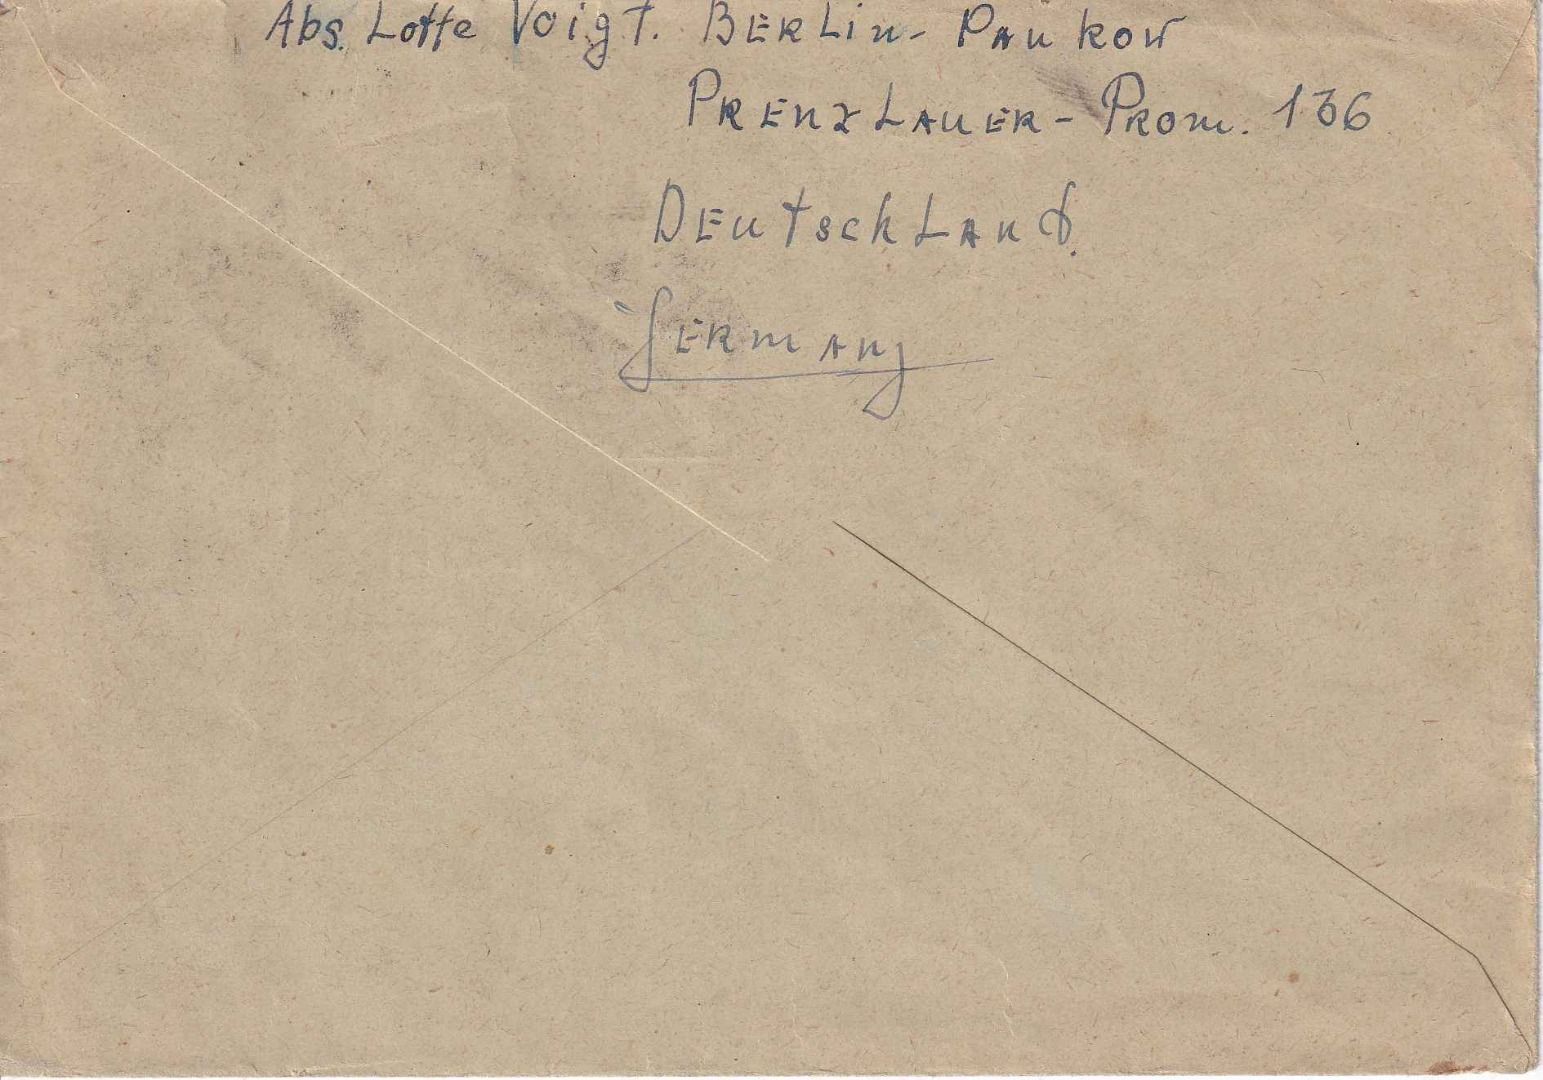 Abs. Lotte Voigt. BERLin-PAnkow
PRENZLAUER-Prom. 136
DEutschLAnd.
GERMANY